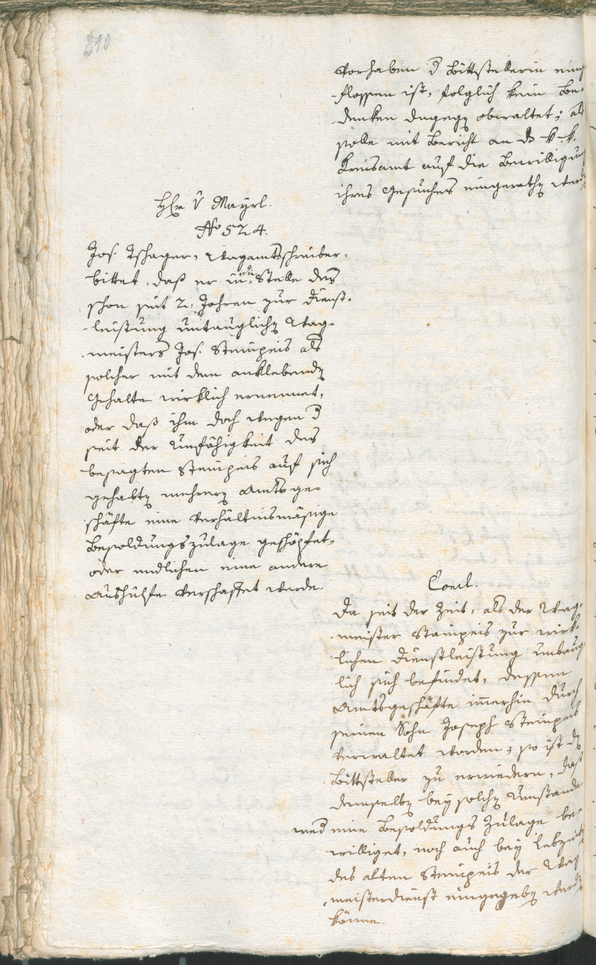 210
Vorhaben d Bittstellerin
flossen ist, folglich kein Be-
denken dagegen obwaltet; als
solle mit Bericht an d k. k.
Kreisamt auf die Bewilligung
ihres Gesuches eingerathen werden
H: v Mayrl.
No 524.
Jos. Tschager, Wagamtsschreiber,
bittet, daß er in die Stelle des
schon seit 2. Jahren zur Dienst-
leistung untauglichen Wag-
meisters Jos. Steinpeis als
solcher mit dem anklebenden
Gehalte wirklich ernennet,
oder daß ihm doch wegen d
seit der Unfähigkeit des
besagten Steinpeis auf sich
gehabten mehrern Amtsge-
schäfte eine verhältnismäsige
Besoldungszulage geschöpfet,
oder endlichen eine andere
Aushülfe verschaffet werde.
Concl.
Da seit der Zeit, als der Wag-
meister Steinpeis zur wirk-
lichen Dienstleistung untaug-
lich sich befindet, dessen
Amtsgeschäfte immerhin durch
seinen Sohn Joseph Steinpeis
verwaltet worden; so ist d
Bittsteller zu erwiedern, daß
demselben bey solchen Umständen
wed eine Besoldungs Zulage be-
williget, noch auch bey Lebzeiten
des alten Steinpeis der Wag
meisterdienst eingegeben werden
könne.